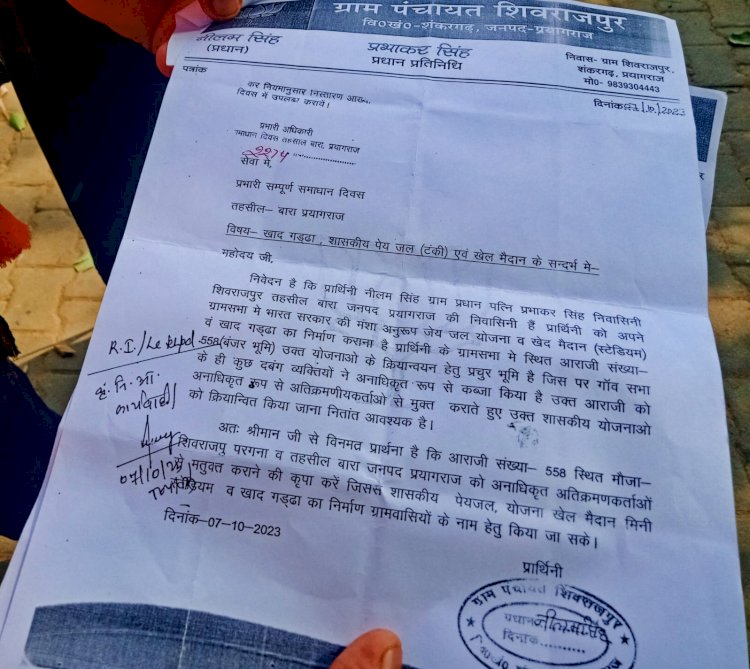 ग्राम पंचायत शिवराजपुर
वि०खं०-शंकरगढ़, जनपद-प्रयागराज
नीलम सिंह
(प्रधान)
प्रभाकर सिंह
प्रधान प्रतिनिधि
निवास- ग्राम शिवराजपुर,
शंकरगढ़, प्रयागराज
मो0- 9839304443
पत्रांक
दिनांक 07/10/2023
कर नियमानुसार निस्तारण आख्या
दिवस में उपलब्ध करायें।
प्रभारी अधिकारी
माधान दिवस तहसील बारा, प्रयागराज
2274
सेवा मे,
प्रभारी सम्पूर्ण समाधान दिवस
तहसील– बारा प्रयागराज
विषय– खाद गड्ढा , शासकीय पेय जल (टंकी) एवं खेल मैदान के सन्दर्भ मे–
महोदय जी,
निवेदन है कि प्रार्थिनी नीलम सिंह ग्राम प्रधान पत्नि प्रभाकर सिंह निवासिनी
शिवराजपुर तहसील बारा जनपद प्रयागराज की निवासिनी हैं प्रार्थिनी को अपने
ग्रामसभा मे भारत सरकार की मंशा अनुरूप जेय जल योजना व खेद मैदान (स्टेडियम)
वं खाद गड्ढा का निर्माण कराना है प्रार्थिनी के ग्रामसभा मे स्थित आराजी संख्या–
558(बंजर भूमि) उक्त योजनाओ के क्रियान्वयन हेतु प्रचुर भूमि है जिस पर गाँव सभा
के ही कुछ दबंग व्यक्तियों ने अनाधिकृत रूप से कब्जा किया है उक्त आराजी को
अनाधिकृत रूप से अतिक्रमणीयकर्ताओ से मुक्त कराते हुए उक्त शासकीय योजनाओ
को क्रियान्वित किया जाना नितांत आवश्यक है।
R.I./Lekhpal
कार्यवाही
07/10/23
अतः श्रीमान जी से विनमत्र प्रार्थना है कि आराजी संख्या– 558 स्थित मौजा–
शिवराजपु परगना व तहसील बारा जनपद प्रयागराज को अनाधिकृत अतिक्रमणकर्ताओं
मतुक्त कराने की कृपा करें जिससे शासकीय पेयजल, योजना खेल मैदान मिनी
डियम व खाद गड्ढा का निर्माण ग्रामवासियों के नाम हेतु किया जा सके।
दिनांक–07-10-2023
प्रार्थिनी
ग्राम पंचायत शिवराजपुर
प्रधान नीलम सिंह
दिनांक